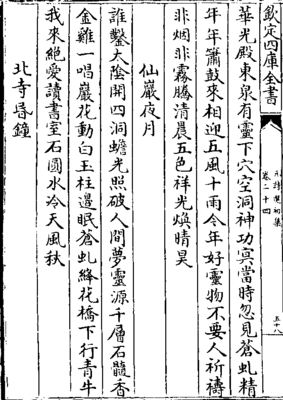 欽定四庫全書
卷二十四
五十八
華光殿東泉有靈下穴空洞神功㝠當時忽見蒼虬精
年年簫鼓來相迎五風十雨今年好靈物不要人祈禱
非烟非霧騰清晨五色祥光煥晴昊
仙巖夜月
誰鑿大陰開四洞蟾光照破人間夢靈源千層石髓香
金雞一唱巖花動白玉柱邊眠蒼虬絳花橋下行青牛
我來絶愛讀書室石圓水冷天風秋
北寺昏鐘